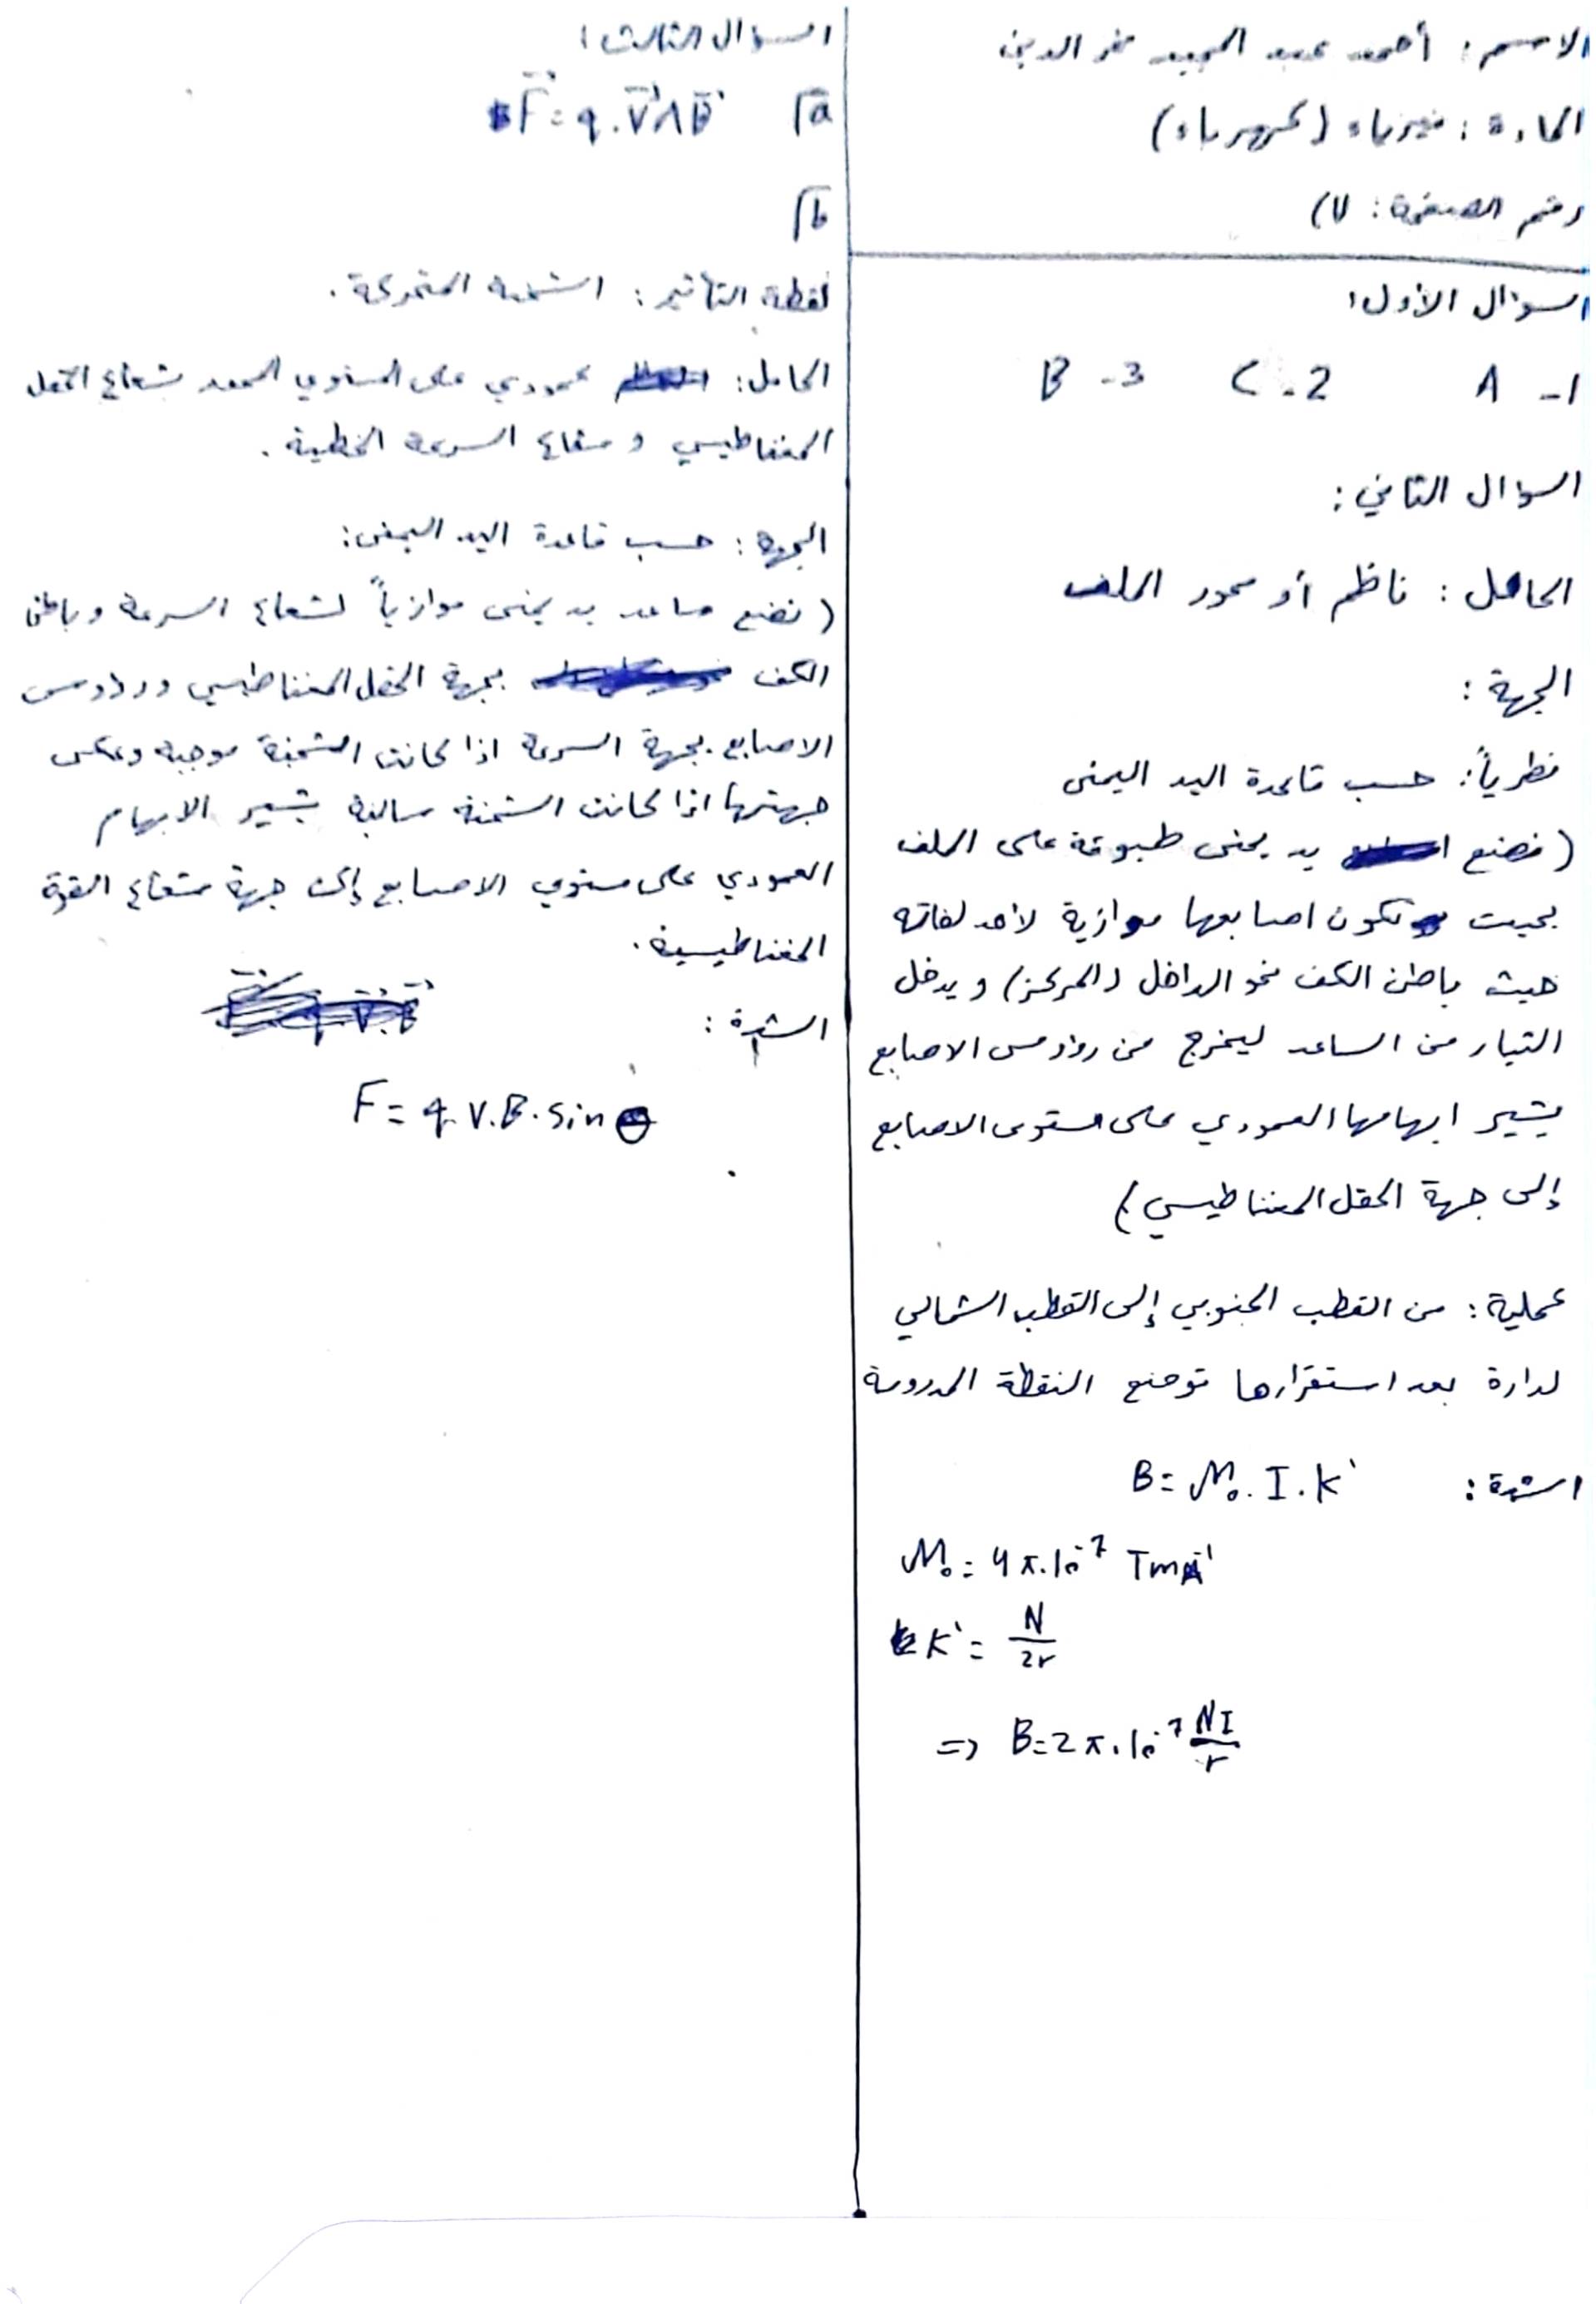 الاسم: أحمد عبد المجيد فخر الدين
المادة: فيزياء (كهرباء)
رقم الصفحة: (1
السؤال الأول:
1- A 2- C 3- B
السؤال الثاني:
الحامل: ناظم أو محور الملف
الجهة:
نظرياً: حسب قاعدة اليد اليمنى
(نضع يد يمنى طبوقة على الملف
بحيث تكون اصابعها موازية لأحد لفاته
حيث باطن الكف نحو الداخل (المركز) و يدخل
التيار من الساعد ليخرج من رؤوس الاصابع
يشير ابهامها العمودي على مستوى الاصابع
إلى جهة الحقل المغناطيسي)
عملية: من القطب الجنوبي إلى القطب الشمالي
لدارة بعد استقرارها توضع النقطة المدروسة
الشدة: B = M₀ . I . K`
M₀ = 4π.10⁻⁷ TmA⁻¹
K` = N/2r
=> B = 2π.10⁻⁷ NI/r
السؤال الثالث:
a F⃗ = q . V⃗ Λ B⃗
b
نقطة التأثير: الشحنة المتحركة.
الحامل: عمودي على المستوي المحدد بشعاع الحقل
المغناطيسي و شعاع السرعة الخطية.
الجهة: حسب قاعدة اليد اليمنى:
(نضع ساعد يد يمنى موازياً لشعاع السرعة و باطن
الكف بجهة الحقل المغناطيسي و رؤوس
الاصابع بجهة السرعة اذا كانت الشحنة موجبة وعكس
جهتها اذا كانت الشحنة سالبة يشير الابهام
العمودي على مستوي الاصابع إلى جهة شعاع القوة
المغناطيسية.
الشدة:
F = q. V. B. sin θ